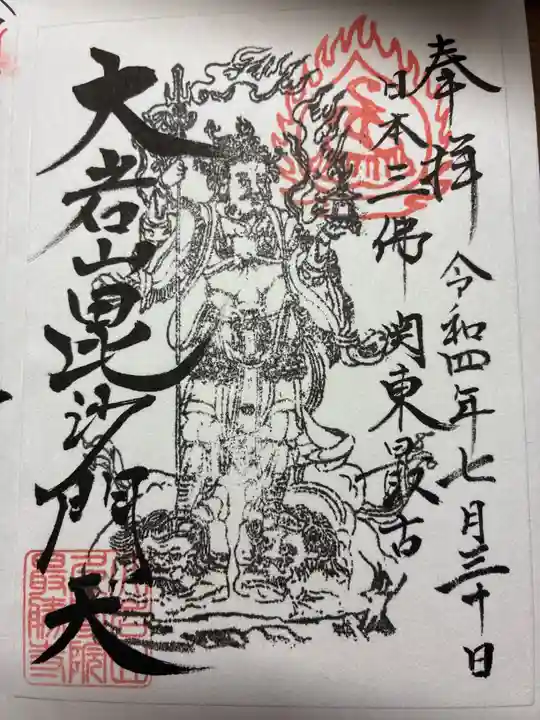 奉拝
令和四年七月三十日
日本三佛
関東最古
大岩山毘沙門天